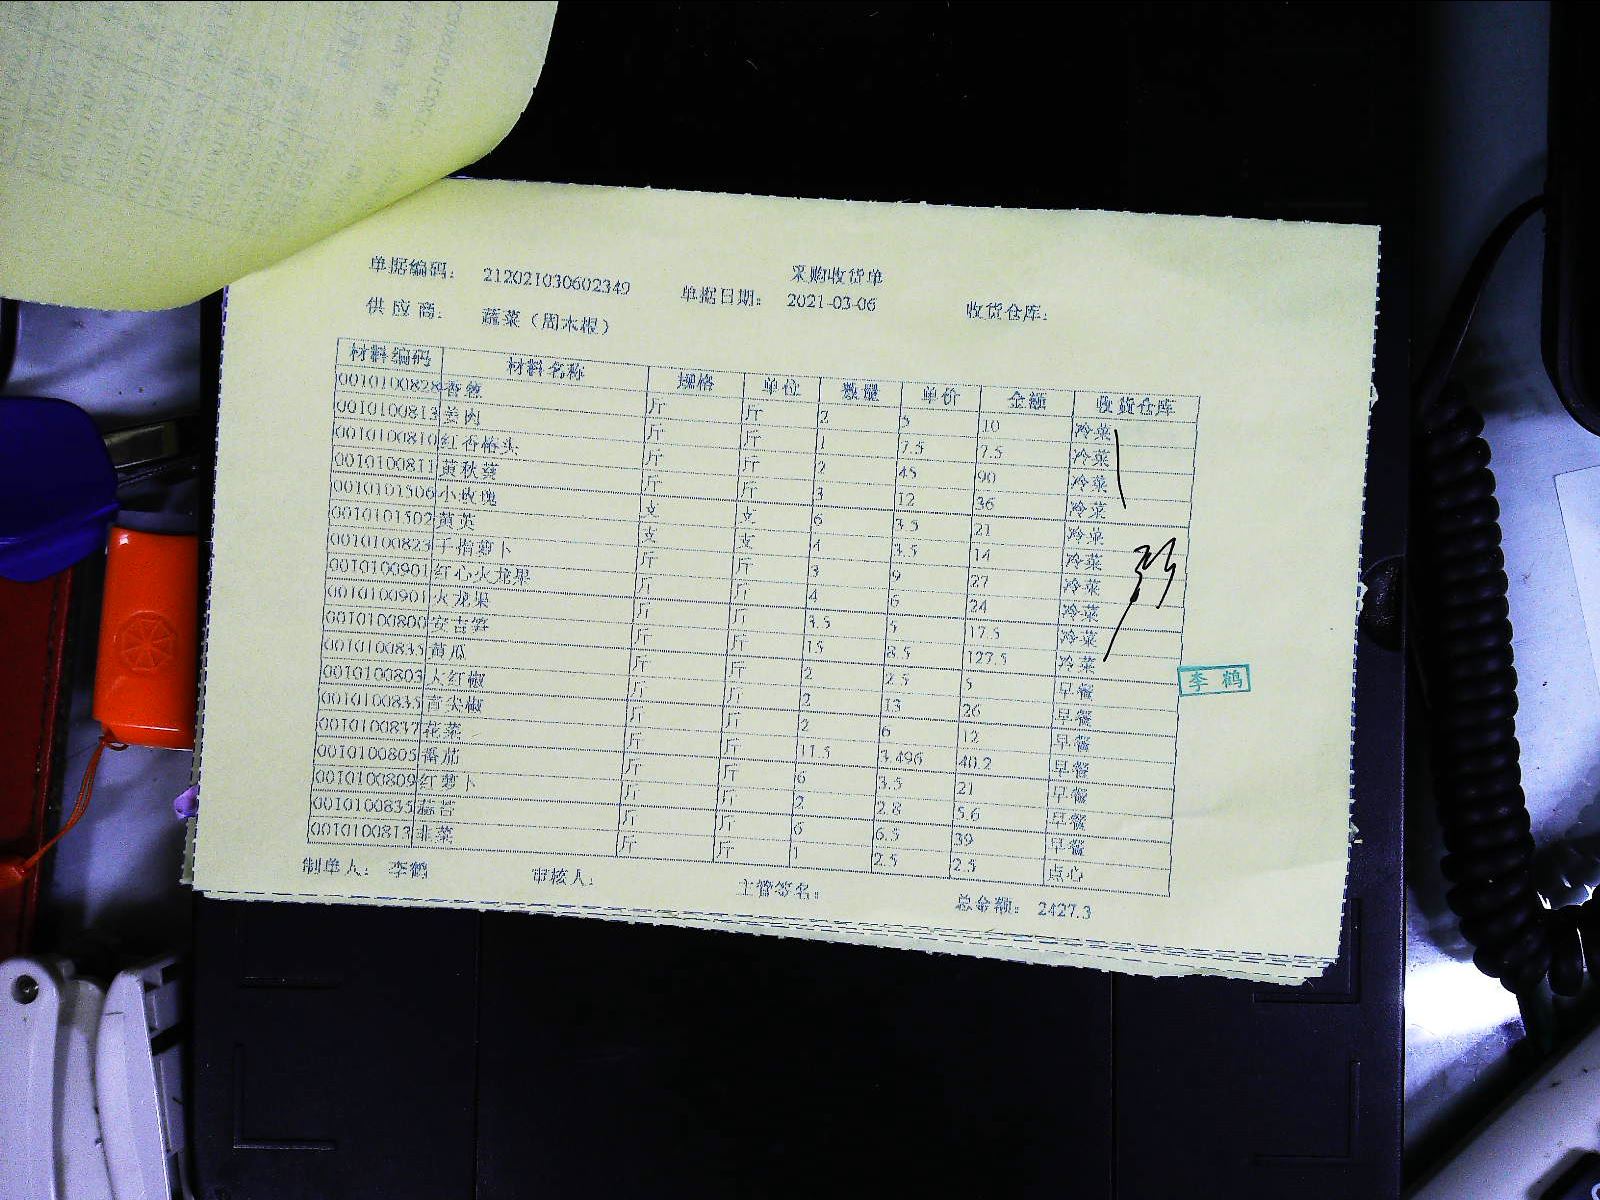 采购收货单
单据编码： 212021030602349 单据日期： 2021-03-06 收货仓库：
供应商： 蔬菜（周木根）
材料编码 材料名称 规格 单位 数量 单价 金额 收货仓库
0010100828 香葱 斤 斤 2 5 10 冷菜
0010100813 姜肉 斤 斤 1 7.5 7.5 冷菜
0010100810 红香椿头 斤 斤 2 45 90 冷菜
0010100811 黄秋葵 斤 斤 3 12 36 冷菜
0010101506 小玫瑰 支 支 6 3.5 21 冷菜
0010101502 黄英 支 支 4 3.5 14 冷菜
0010100823 手指萝卜 斤 斤 3 9 27 冷菜
0010100901 红心火龙果 斤 斤 4 6 24 冷菜
0010100901 火龙果 斤 斤 3.5 5 17.5 冷菜
0010100800 安吉笋 斤 斤 15 8.5 127.5 冷菜
0010100835 黄瓜 斤 斤 2 2.5 5 早餐
0010100803 大红椒 斤 斤 2 13 26 早餐
0010100835 青尖椒 斤 斤 2 6 12 早餐
0010100837 花菜 斤 斤 11.5 3.496 40.2 早餐
0010100805 番茄 斤 斤 6 3.5 21 早餐
0010100809 红萝卜 斤 斤 2 2.8 5.6 早餐
0010100835 蒜苔 斤 斤 6 6.5 39 早餐
0010100813 韭菜 斤 斤 1 2.5 2.5 点心
李鹤
制单人： 李鹤 审核人： 主管签名： 总金额： 2427.3